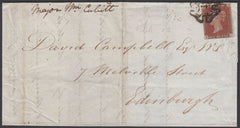 Major Mc Calatt
David Campbell Esqr W.S.
7 Melville Street
Edinburgh